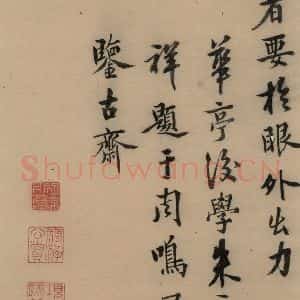 者要於眼外出力
華亭後學朱
祥題于周鳴
鑒古齋
Shufawang.CN